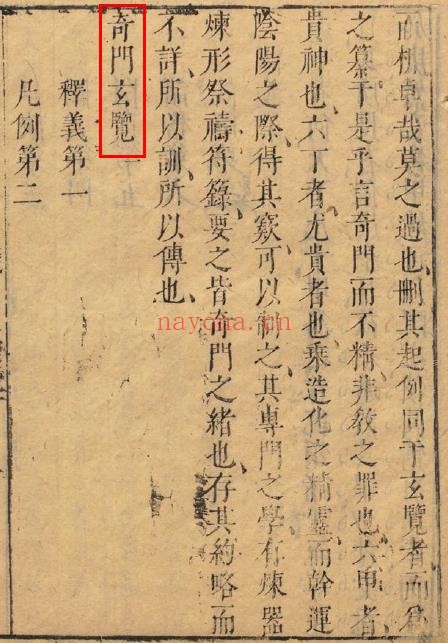 而標卓哉莫之過也刪其起例同于玄覽者而爲
之纂于是乎言奇門而不精非教之罪也六甲者
貴神也六丁者尤貴者也乘造化之精靈而幹運
陰陽之際得其竅可以輔之其專門之學有煉器
煉形祭禱符籙要之皆奇門之緒也存其約略而
不詳所以訓所以傳也
奇門玄覽
釋義第一
凡例第二
nayona.cn